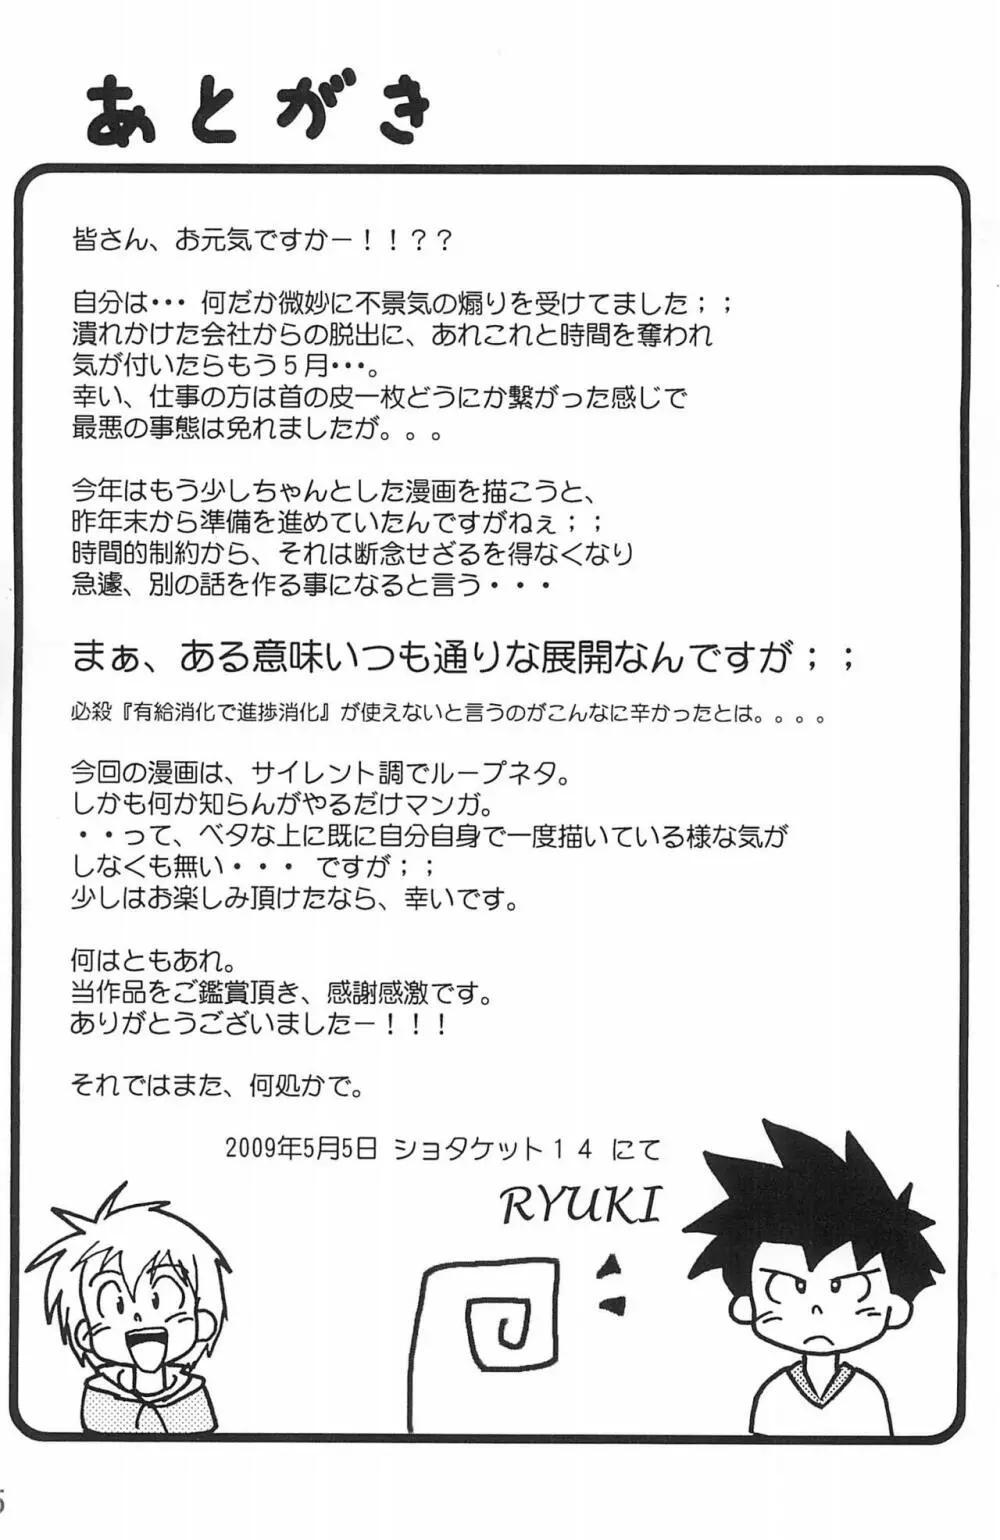 あとがき
皆さん、お元気ですかー！！？？
自分は・・・ 何だか微妙に不景気の煽りを受けてました；；
潰れかけた会社からの脱出に、あれこれと時間を奪われ
気が付いたらもう５月・・・。
幸い、仕事の方は首の皮一枚どうにか繋がった感じで
最悪の事態は免れましたが。。。
今年はもう少しちゃんとした漫画を描こうと、
昨年末から準備を進めていたんですがねぇ；；
時間的制約から、それは断念せざるを得なくなり
急遽、別の話を作る事になると言う・・・
まぁ、ある意味いつも通りな展開なんですが；；
必殺『有給消化で進捗消化』が使えないと言うのがこんなに辛かったとは。。。。
今回の漫画は、サイレント調でループネタ。
しかも何か知らんがやるだけマンガ。
・・って、ベタな上に既に自分自身で一度描いている様な気が
しなくも無い・・・ ですが；；
少しはお楽しみ頂けたなら、幸いです。
何はともあれ。
当作品をご鑑賞頂き、感謝感激です。
ありがとうございましたー！！！
それではまた、何処かで。
2009年5月5日 ショタケット１４ にて
RYUKI
5